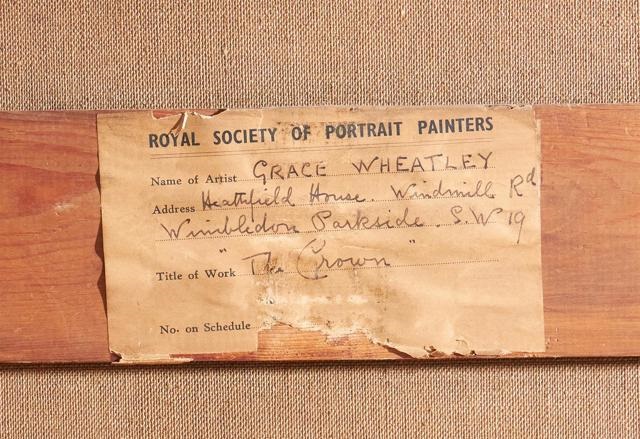 ROYAL SOCIETY OF PORTRAIT PAINTERS
Name of Artist GRACE WHEATLEY
Address Heathfield House. Windmill Rd
Wimbledon Parkside. S.W 19
Title of Work "The Crown"
No. on Schedule